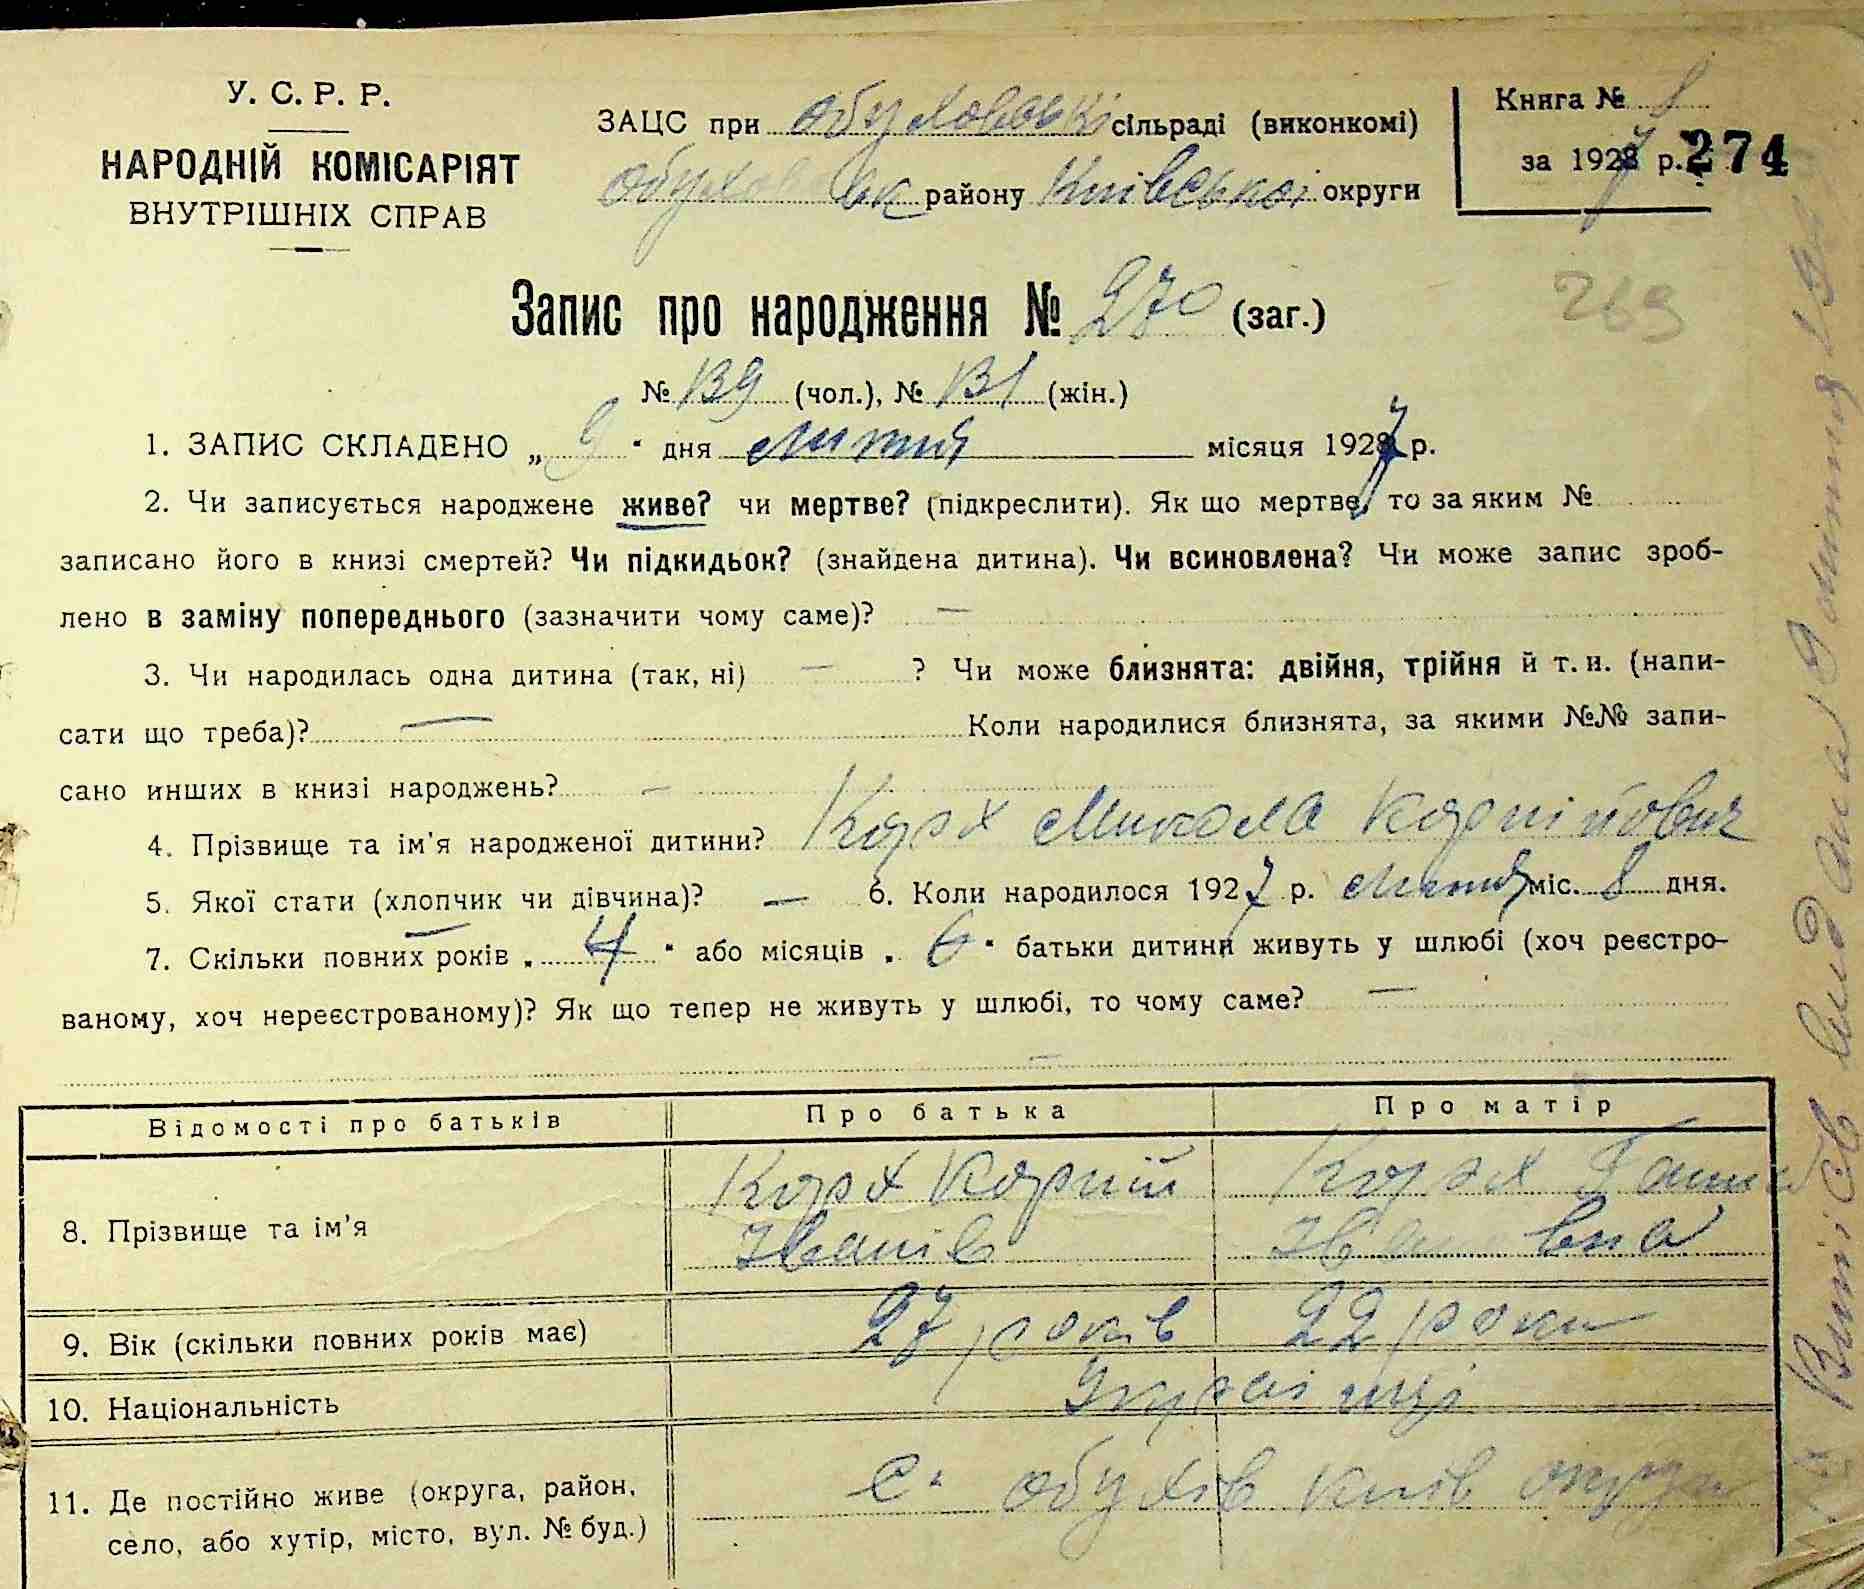 У. С. Р. Р.
НАРОДНІЙ КОМІСАРІЯТ
ВНУТРІШНІХ СПРАВ
ЗАЦС при Обуховській сільраді (виконкомі)
Обуховськ району Київської округи
Книга №
за 1927 р.
274
Запис про народження № 270 (заг.)
269
№ 139 (чол.), № 131 (жін.)
1. ЗАПИС СКЛАДЕНО „ 9 " дня лютня місяця 1927 р.
2. Чи записується народжене живе? чи мертве? (підкреслити). Як що мертве, то за яким №
записано його в книзі смертей? Чи підкидьок? (знайдена дитина). Чи всиновлена? Чи може запис зроб-
лено в заміну попереднього (зазначити чому саме)? —
3. Чи народилась одна дитина (так, ні) — ? Чи може близнята: двійня, трійня й т. и. (напи-
сати що треба)? — Коли народилися близнята, за якими №№ запи-
сано инших в книзі народжень? —
4. Прізвище та ім'я народженої дитини? Корж Микола Корнійович
5. Якої стати (хлопчик чи дівчина)? — 6. Коли народилося 1927 р. лютня міс. 8 дня.
7. Скільки повних років „ 4 " або місяців „ 6 " батьки дитини живуть у шлюбі (хоч реєстро-
ваному, хоч нереєстрованому)? Як що тепер не живуть у шлюбі, то чому саме? —
—
Відомості про батьків Про батька Про матір
8. Прізвище та ім'я Корж Корній Корж Ганна
Іванів Івановна
9. Вік (скільки повних років має) 27 років 22 роки
10. Національність Українці
11. Де постійно живе (округа, район, с. Обухів Київ округи
село, або хутір, місто, вул. № буд.)
Витяг видана 9 лютня